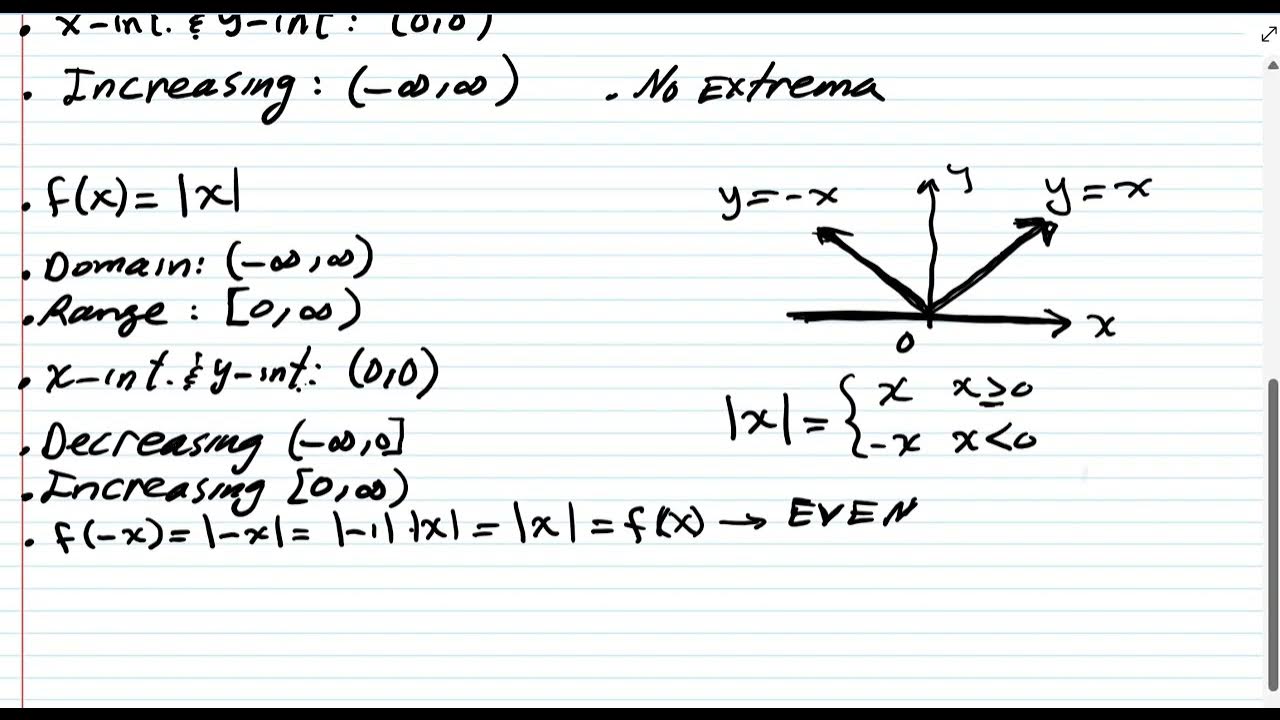 . x-int. & y-int: (0,0)
. Increasing: (-∞,∞) . No Extrema
. f(x) = |x|
. Domain: (-∞,∞)
. Range: [0,∞)
. x-int. & y-int: (0,0)
. Decreasing (-∞,0]
. Increasing [0,∞)
. f(-x) = |-x| = |-1|·|x| = |x| = f(x) → EVEN
y=-x y y=x
0 x
|x| = { x x≥0
-x x<0